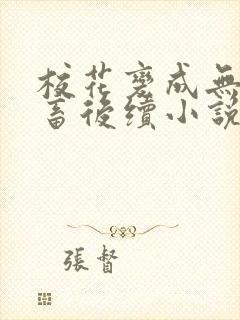 校花變成無
畜後續小說
張督